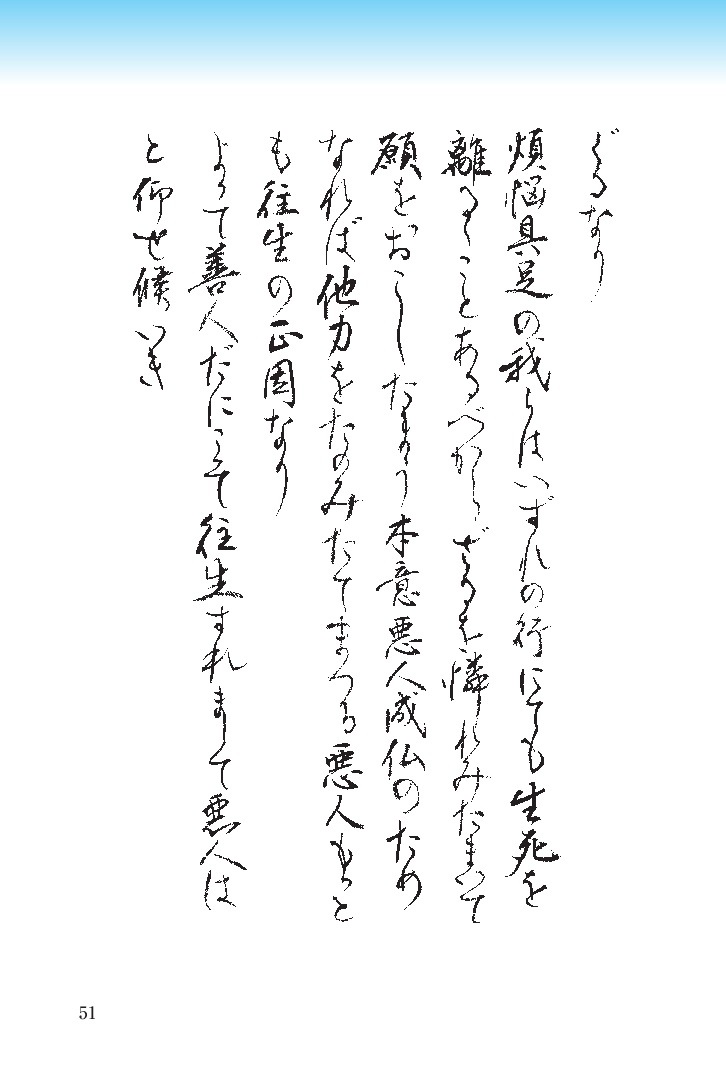 ぐるなり
煩悩具足の我らはいずれの行にても生死を
離るることあるべからざるを憐れみたまいて
願をおこしたまう本意悪人成仏のため
なれば他力をたのみたてまつる悪人もっと
も往生の正因なり
よって善人だにこそ往生すれまして悪人は
と仰せ候いき
51